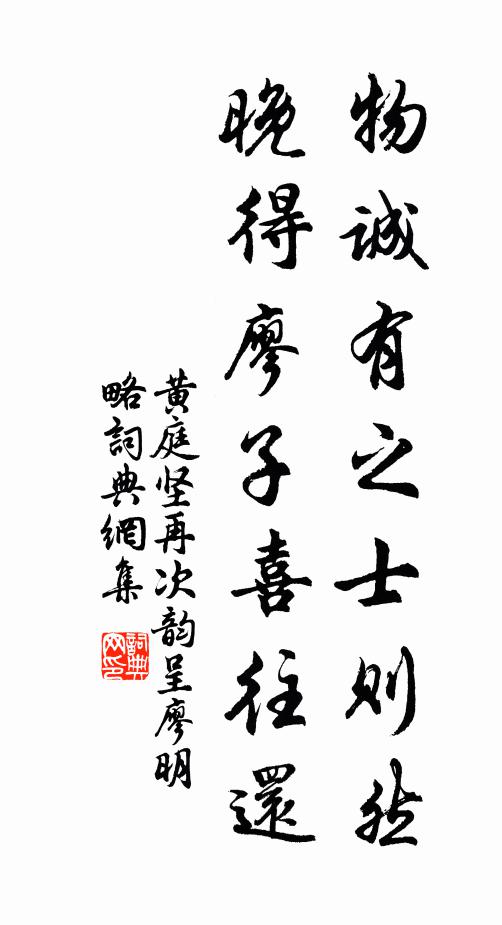 物誠有之士則然
晚得廖子喜往還
黄庭坚再次韵呈廖明
略詞典網集
詞典网印